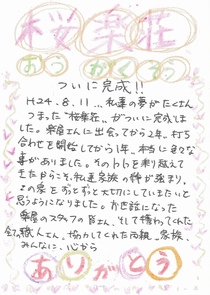 桜楽荘
おうがくそう
ついに完成!!
H24.8.11...私達の夢がたくさん
つまった"桜楽荘"がついに完成しま
した。楽居さんに出会ってから2年、打ち
合わせを開始してから1年、本当に色々な
事がありました。そのひとつひとつを乗り越えて
きたからこそ、私達家族の絆が強まり、
この家をずっとずっと大切にしていきたいと
思うようになりました。お世話になった
楽居のスタッフの皆さん、そして携わってくれた
全ての職人さん、協力してくれた両親、家族、
みんなに、心から
ありがとう